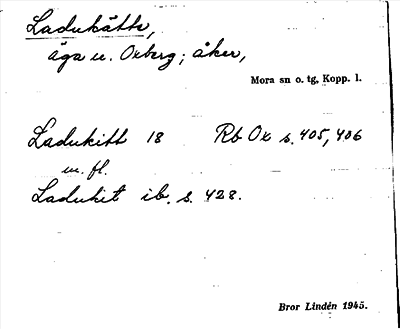 Ladukätte,
äga u. Oxberg; åker,
Mora sn o. tg, Kopp. l.
Ladukitt 18 Rb Ox s. 405, 406
m. fl.
Ladukit ib. s. 428.
Bror Lindén 1945.